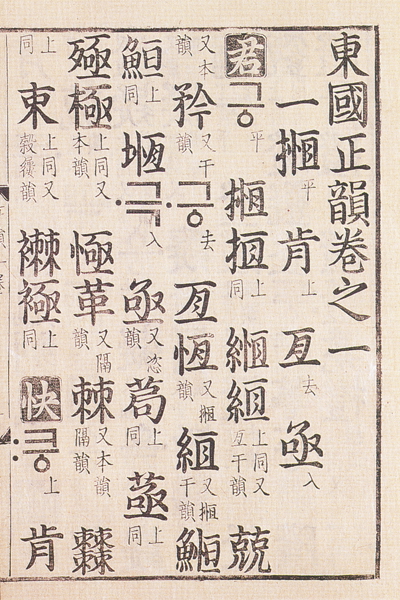 東國正韻卷之一
一 揯平 肯上 亙去 亟入
君 긍平 揯 搄上同 緪 絚上同又亙干韻 兢
又本韻 矜又干韻 〮긍去 亙 恆又揯韻 絚又揯干韻 䱭
䱴上同 堩 〮극入 亟 茍上同 上同
殛 極上同又本韻 㥛 革又隔韻 棘又本韻隔韻
上同 襋 上同 快 〯긍上 肯